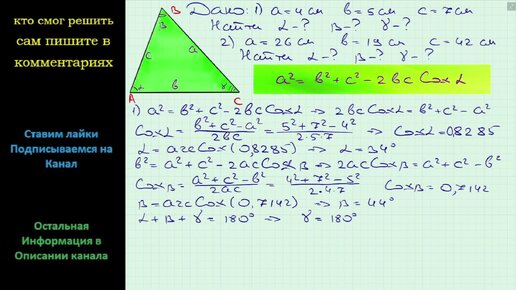 кто смог решить
сам пишите в
комментариях
Ставим лайки
Подписываемся на
Канал
Остальная
Информация в
Описании канала
B
β
c
a
α
b
γ
A
C
Дано: 1) a = 4 см b = 5 см c = 7 см
Найти α-? β-? γ-?
2) a = 26 см b = 19 см c = 42 см
Найти α-? β-? γ-?
a² = b² + c² - 2bc Cosα
1) a² = b² + c² - 2bc Cosα ⇒ 2bc Cosα = b² + c² - a²
Cosα = (b² + c² - a²)/(2bc) = (5² + 7² - 4²)/(2·5·7) ⇒ Cosα = 0,8285
α = arcCos(0,8285) ⇒ α = 34°
b² = a² + c² - 2ac Cosβ ⇒ 2ac Cosβ = a² + c² - b²
Cosβ = (a² + c² - b²)/(2ac) = (4² + 7² - 5²)/(2·4·7) Cosβ = 0,7142
β = arcCos(0,7142) ⇒ β = 44°
α + β + γ = 180° ⇒ γ = 180°